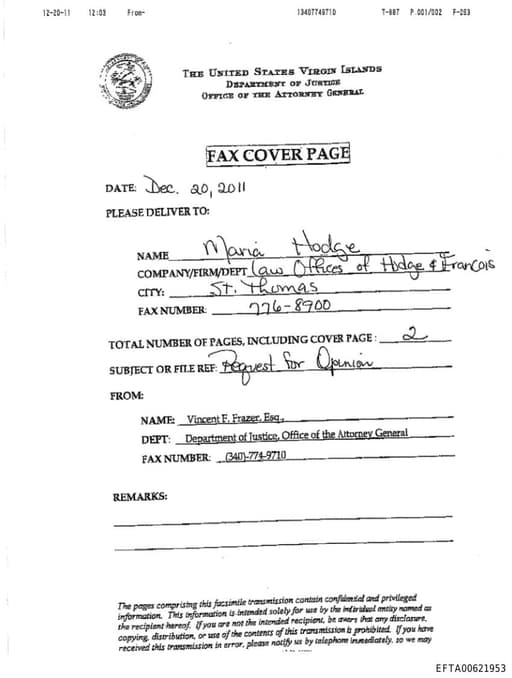 12-20-11 12:03 From- 13407749710 T-887 P.001/002 F-263
THE UNITED STATES VIRGIN ISLANDS
DEPARTMENT OF JUSTICE
OFFICE OF THE ATTORNEY GENERAL
FAX COVER PAGE
DATE: Dec. 20, 2011
PLEASE DELIVER TO:
NAME Maria Hodge
COMPANY/FIRM/DEPT Law Offices of Hodge & Francois
CITY: St. Thomas
FAX NUMBER: 776-8900
TOTAL NUMBER OF PAGES, INCLUDING COVER PAGE: 2
SUBJECT OR FILE REF: Request for Opinion
FROM:
NAME: Vincent F. Frazer, Esq.,
DEPT: Department of Justice, Office of the Attorney General
FAX NUMBER: (340)-774-9710
REMARKS:
The pages comprising this facsimile transmission contain confidential and privileged
information. This information is intended solely for use by the individual entity named as
the recipient hereof. If you are not the intended recipient, be aware that any disclosure,
copying, distribution, or use of the contents of this transmission is prohibited. If you have
received this transmission in error, please notify us by telephone immediately, so we may
EFTA00621953